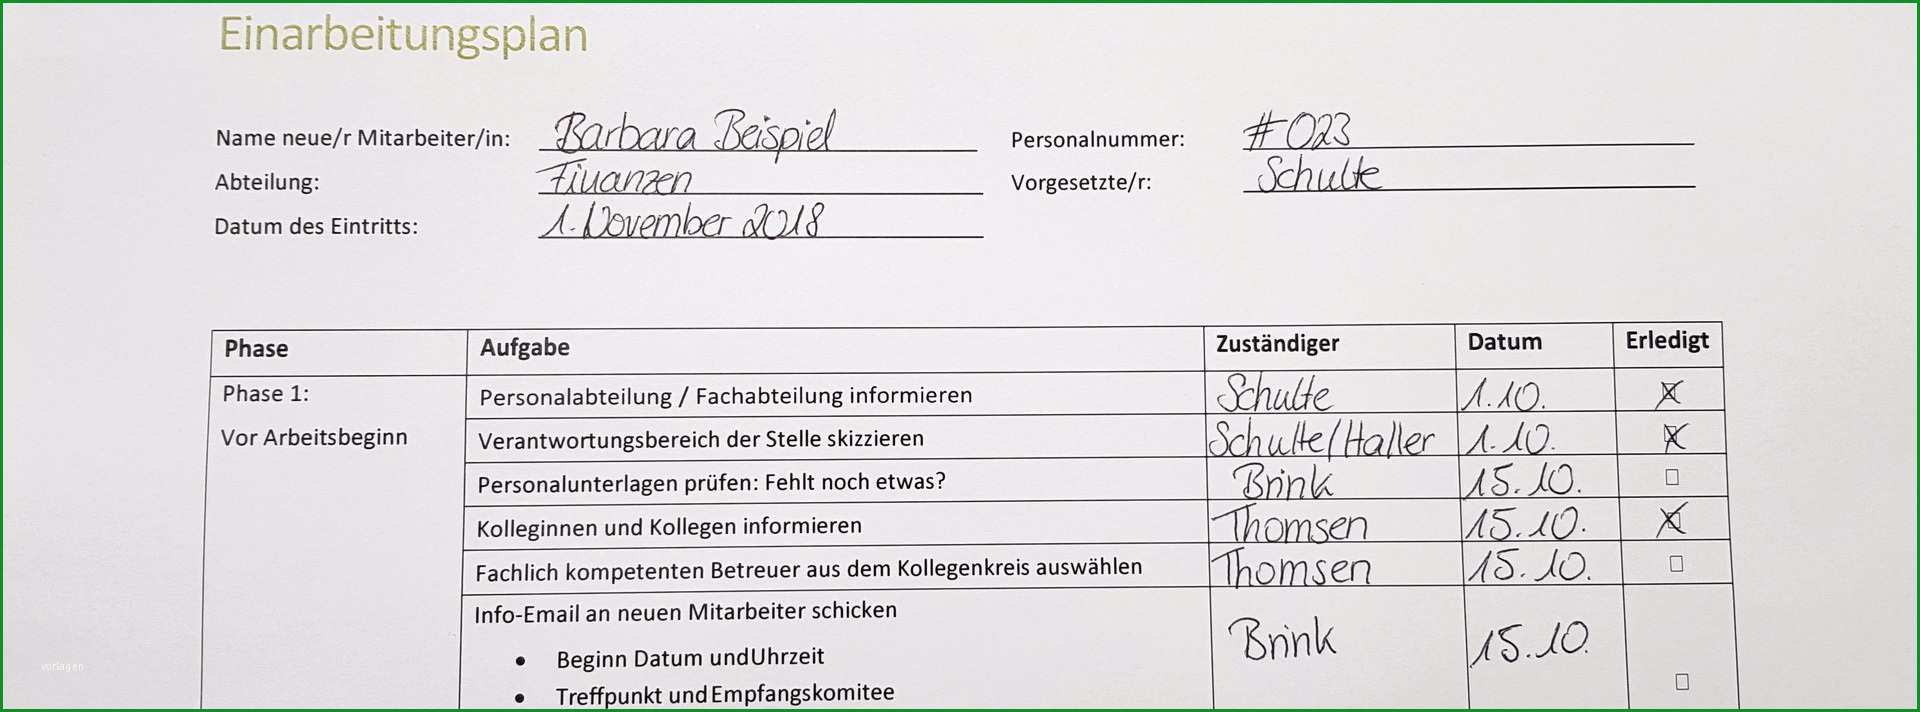 Einarbeitungsplan
Name neue/r Mitarbeiter/in: Barbara Beispiel Personalnummer: #023
Abteilung: Finanzen Vorgesetzte/r: Schulte
Datum des Eintritts: 1. November 2018
Phase Aufgabe Zuständiger Datum Erledigt
Phase 1: Personalabteilung / Fachabteilung informieren Schulte 1.10. ☒
Vor Arbeitsbeginn Verantwortungsbereich der Stelle skizzieren Schulte/Haller 1.10. ☒
Personalunterlagen prüfen: Fehlt noch etwas? Brink 15.10. ☐
Kolleginnen und Kollegen informieren Thomsen 15.10. ☒
Fachlich kompetenten Betreuer aus dem Kollegenkreis auswählen Thomsen 15.10. ☐
Info-Email an neuen Mitarbeiter schicken Brink 15.10. ☐
• Beginn Datum undUhrzeit
• Treffpunkt und Empfangskomitee
vorlagen